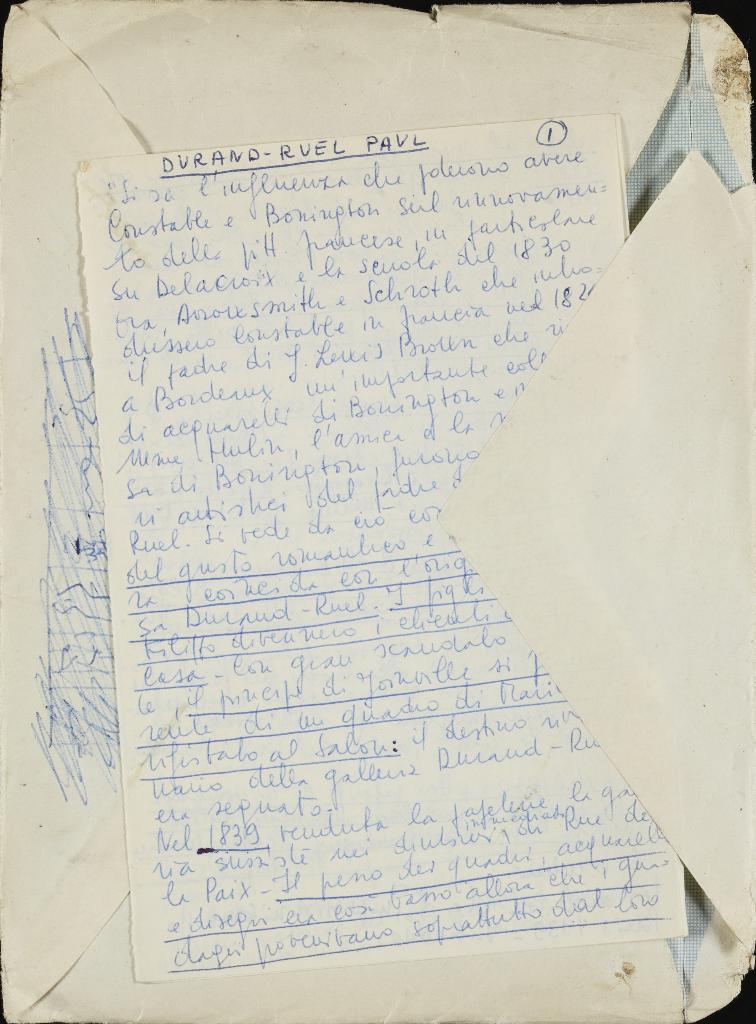 DURAND-RUEL PAUL
1
"Si sa l'influenza che poterono avere
Constable e Bonington sul rinnovamen=
to della pitt. francese, in particolare
su Delacroix e la scuola del 1830
tra, Arrowsmith e Schroth che intro=
dussero Constable in francia nel 182
il padre di J. Lewis Brown che
a Bordeaux un'importante
di acquarelli di Bonington e
Mme Hulin, l'amica e la
sa di Bonington, furono
ri artistici del padre
Ruel. Si vede da ciò
del gusto romantico e
ra coincida con l'orig
sa Durand-Ruel. I figli
Filippo divennero i clienti
casa - Con gran scandalo
le il principe di Joinville si
rente di un quadro di
rifiutato al Salon: il destino
nario della galleria Durand-Ru
era segnato -
Nel 1839 venduta la papeterie la ga
ria sussiste nei dintorni immediati di Rue de
la Paix - Il prezzo dei quadri, acquarelli
e disegni era così basso allora che i gua=
dagni provenivano soprattutto dal loro